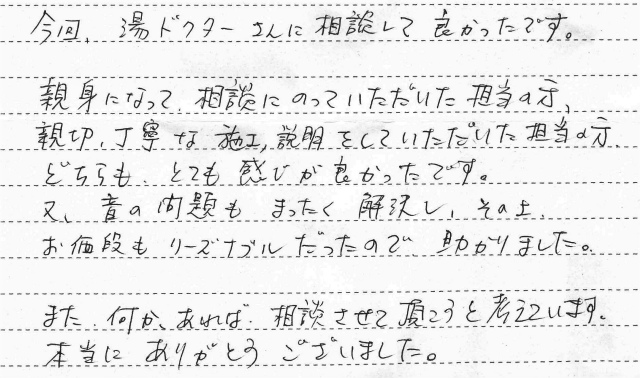 今回、湯ドクターさんに相談して良かったです。
親身になって、相談にのっていただいた担当の方、
親切、丁寧な施工、説明をしていただいた担当の方、
どちらも、とても感じが良かったです。
又、音の問題もまったく解決し、その上、
お値段もリーズナブルだったので、助かりました。
また、何か、あれば、相談させて頂こうと考えています。
本当にありがとうございました。